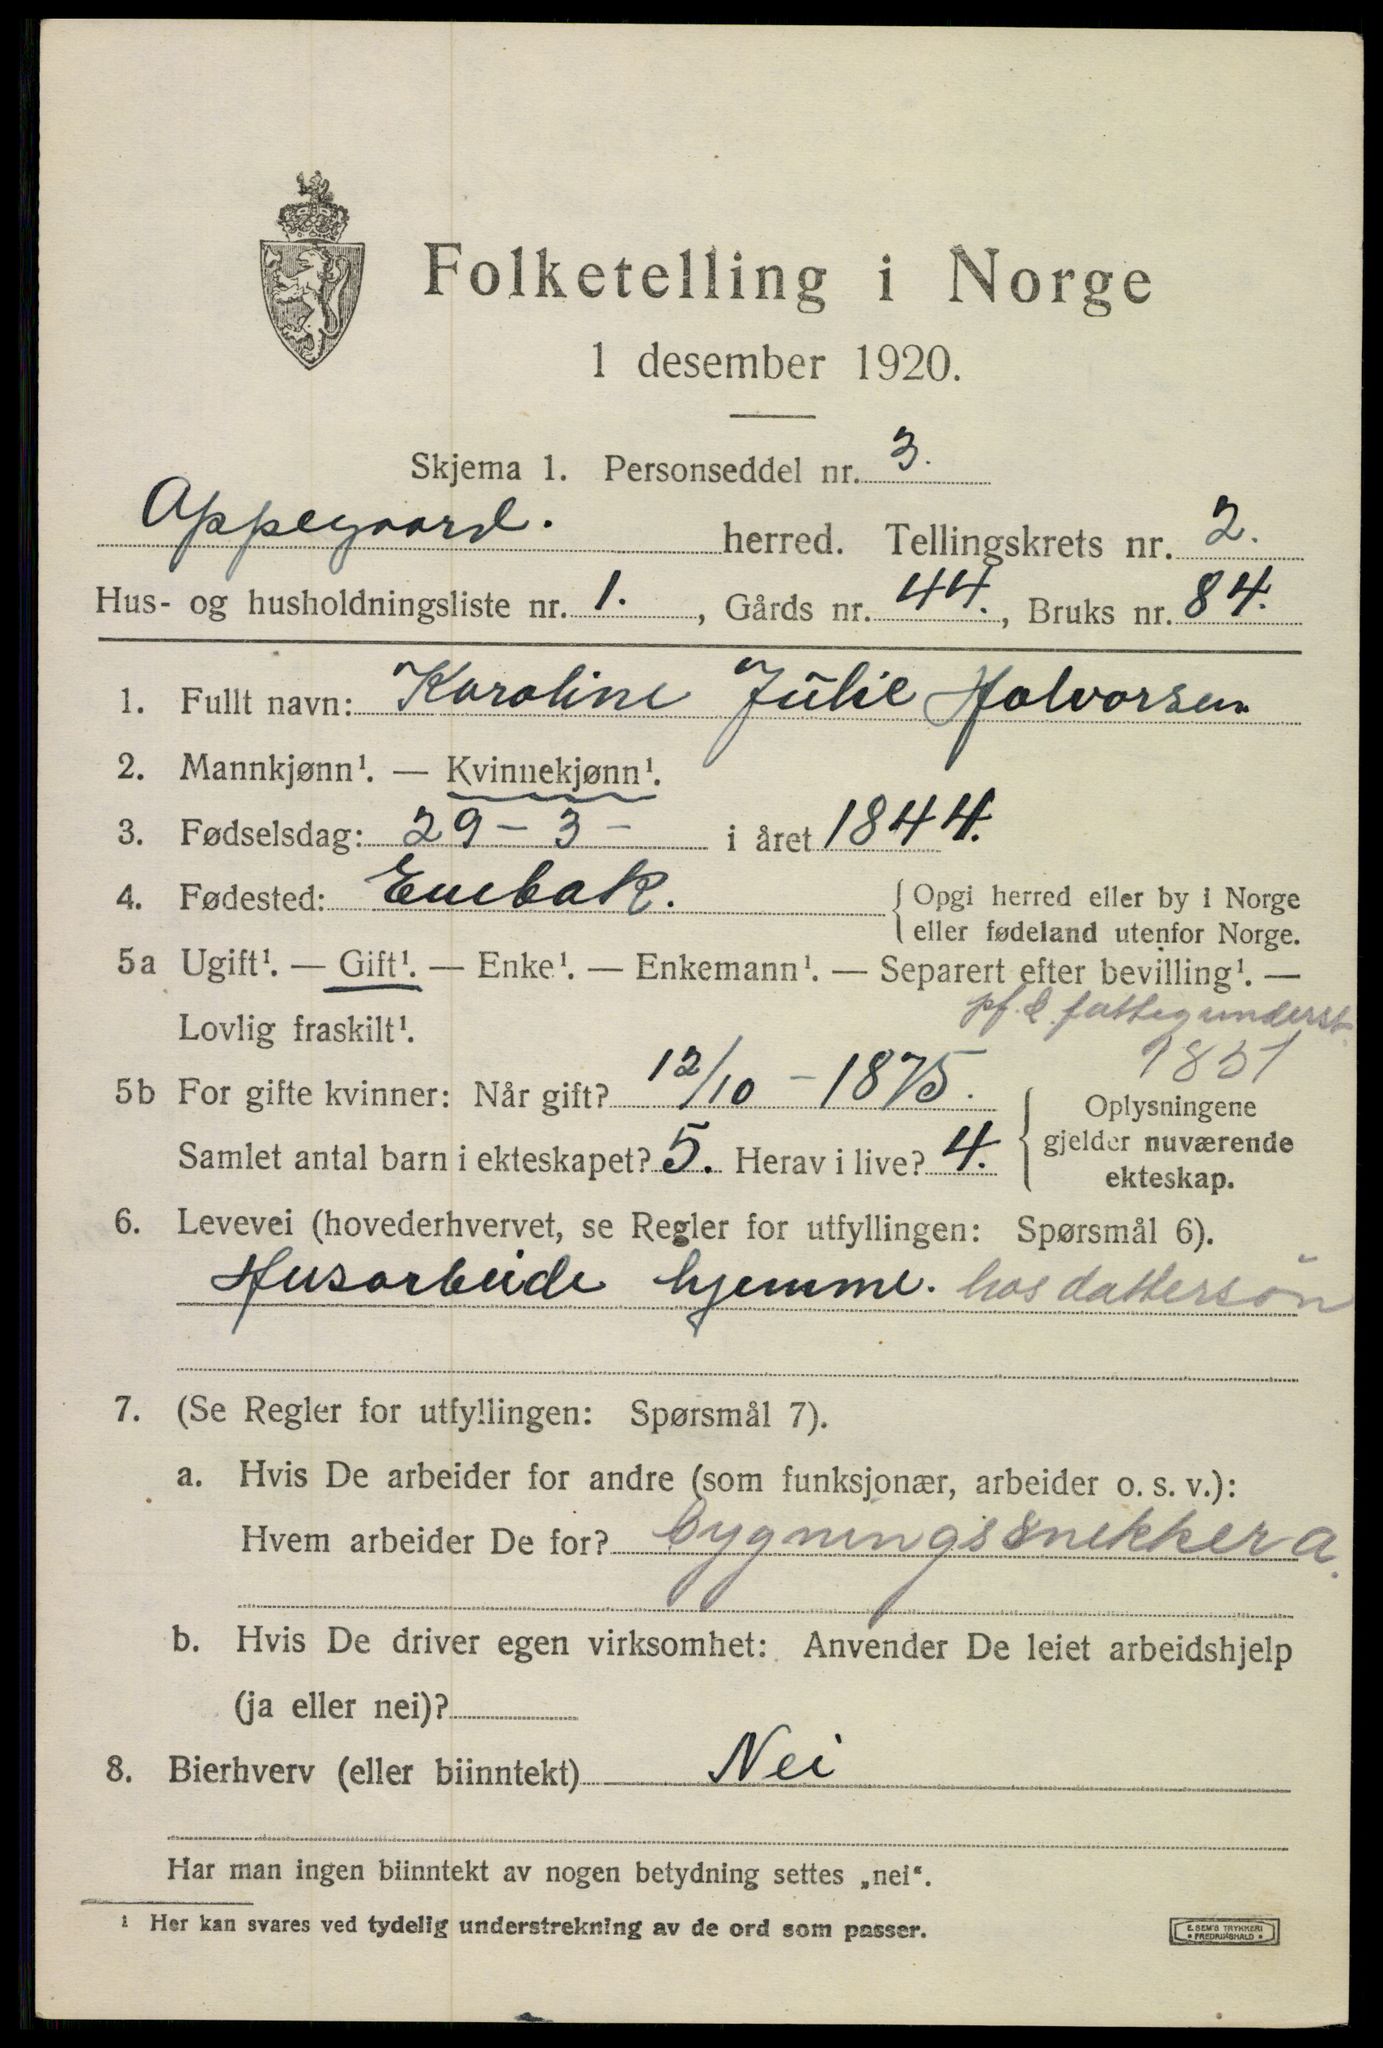 Folketelling i Norge
1 desember 1920.
Skjema 1. Personseddel nr. 3.
Oppegaard. herred. Tellingskrets nr. 2.
Hus- og husholdningsliste nr. 1., Gårds nr. 44., Bruks nr. 84.
1. Fullt navn: Karoline Julie Halvorsen
2. Mannkjønn¹. — Kvinnekjønn¹.
3. Fødselsdag: 29 – 3 – i året 1844.
4. Fødested: Enebak. { Opgi herred eller by i Norge
eller fødeland utenfor Norge.
5a Ugift¹. — Gift¹. — Enke¹. — Enkemann¹. — Separert efter bevilling¹. —
Lovlig fraskilt¹. fattigunderst.
5b For gifte kvinner: Når gift? 12/10 – 1875.
Samlet antal barn i ekteskapet? 5. Herav i live? 4.
{ Oplysningene
gjelder nuværende
ekteskap.
6. Levevei (hovederhvervet, se Regler for utfyllingen: Spørsmål 6).
Husarbeide hjemme. hos dattersøn
7. (Se Regler for utfyllingen: Spørsmål 7).
a. Hvis De arbeider for andre (som funksjonær, arbeider o. s. v.):
Hvem arbeider De for? bygningssnekker a.
b. Hvis De driver egen virksomhet: Anvender De leiet arbeidshjelp
(ja eller nei)?
8. Bierhverv (eller biinntekt) Nei
Har man ingen biinntekt av nogen betydning settes „nei“.
¹ Her kan svares ved tydelig understrekning av de ord som passer.
E. SEM'S TRYKKERI
• FREDRIKSHALD •